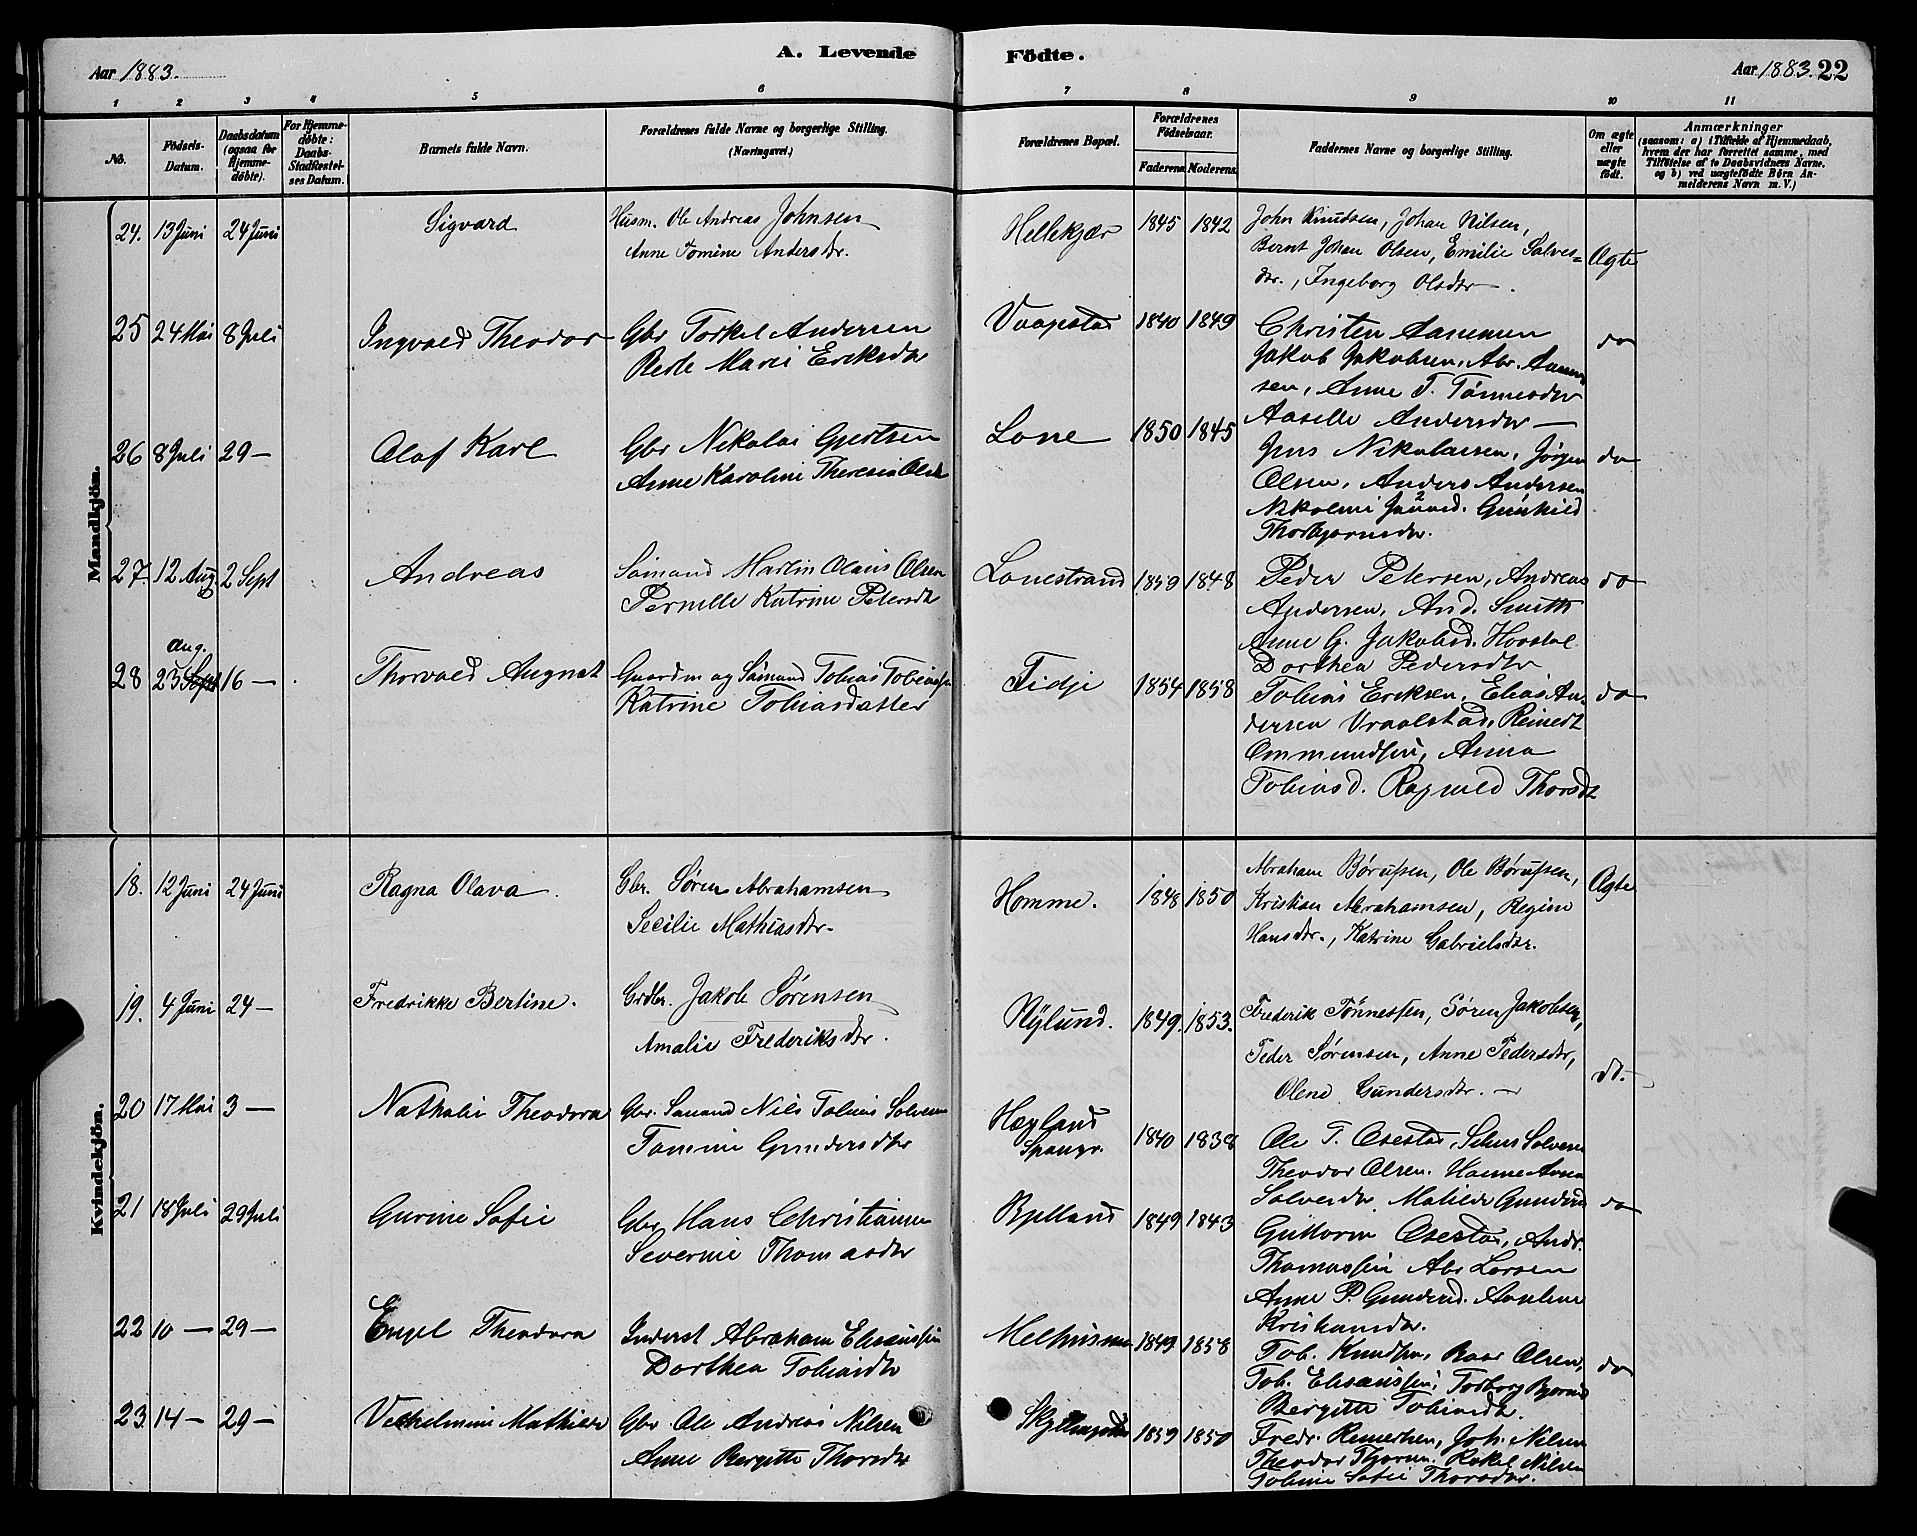 Aar 1883.
A. Levende
Födte.
Aar 1883. 22
1 2 3 4 5 6 7 8 9 10 11
No.
Födsels-Datum.
Daabsdatum (ogsaa for Hjemme-döbte).
For Hjemme-döbte: Daabs-Stadfæstel-ses Datum.
Barnets fulde Navn.
Forældrenes fulde Navne og borgerlige Stilling. (Næringsvei.)
Forældrenes Bopæl.
Forældrenes Födselsaar.
Faderens. Moderens.
Faddernes Navne og borgerlige Stilling.
Om ægte eller uægte födt.
Anmærkninger
(saasom: a) i Tilfælde af Hjemmedaab, hvem der har forrettet samme, med Tilföielse af to Daabsvidners Navne. og b) ved uægtefödte Börn An-melderens Navn m. V.)
Mandkjön.
24. 13 Juni 24 Juni Sigvard Husm. Ole Andreas Johnsen
Anne Tomine Andersdr.
Hellekjær 1845 1842 John Knudsen, Johan Nilsen,
Bernt Johan Olsen, Emilie Salves=
dtr., Ingeborg Olsdtr.
Ægte
25 24 Mai 8 Juli Ingvald Theodor Gbr Torkel Andersen
Berte Marie Eriksdtr
1840 1849 Christen Aanensen
Jakob Jakobsen, Abr. Aanen
sen, Anne T. Tönnesdtr
Aaselle Andersdtr
do
26 8 Juli 29 — Olaf Karl Gbr Nikolai Gjertsen
Anne Karoline Theresia Olsdtr
Lone 1850 1845
Jens Nikolaisen, Jörgen
Olsen, Anders Andersen
Gunhild
Thorbjørnsdtr.
do
27. 12 Aug 2 Sept Andreas Sömand Martin Olaus Olsen
Pernille Katrine Petersdtr
Lonestrand 1859 1848 Peder Petersen, Andreas
Andersen, And. Smith
Anne G. Jakobsd. Horstøl
Dorthea Pedersdtr
do
Aug.
28 23 Sept 16 — Thorvald August Gaardm og Sömand Tobias Tobiassen
Katrine Tobiasdatter
Fidje 1854 1858
Tobias Eriksen, Elias An
dersen Vraalstad, Reinert
Ommundsen, Anna
Tobiasd. Ragnild Thorsdtr
do
Kvindekjön.
18. 12 Juni 24 Juni Ragna Olava. Gbr. Sören Abrahamsen
Secilie Mathiasdtr.
Homme. 1848 1850 Abraham Börufsen, Ole Börufsen,
Kristian Abrahamsen, Regine
Hansdtr., Katrine Gabrielsdtr.
Ægte
19. 4 Juni 24 — Fredrikke Bertine. Grdbr. Jakob Sörensen
Amalie Frederiksdtr.
Nylund. 1849. 1853. Frederik Tönnessen, Sören Jakobsen,
Peder Sörensen, Anne Pedersdtr,
Olene Gundersdtr. —
do.
20 17 Mai 3 — Nathalie Theodora Gbr. Sömand Nils Tobias Solvesen
Tomine Gundersdtr
Høyland
Spangr. 1840 1838 Ole T. Osestad, Selius Solvesen
Theodor Olsen. Hanne Anna
Solvesdtr. Matilde Gundersd
21 18 Juli 29 Juli Gurine Sofie Gbr Hans Christiansen
Severine Thomasdtr
Bjelland 1849 1843
Guttorm Osestad, Andr.
Thomassen Abr Larsen
Anne P. Gundersd. Avelene
Kristiansdtr.
do
22 10 — 29 — Engel Theodora Inderst Abraham Eliassen
Dorthea Tobiasdtr
Melhusmoen 1849 1858
Tob. Knudsen, Roar Olsen,
Tob. Eliassen, Torborg Bjornsd
Bergitte Tobiasdtr.
do
23 14 — 29 — Vilhelmine Mathilde Gbr Ole Andreas Nilsen
Anne Bergitte Thorsdtr
1859 1850
Fredr. Reinertsen, Joh. Nilsen
Theodor Thorsen. Rakel Nilsen
Tobine Sofie Thorsdtr.